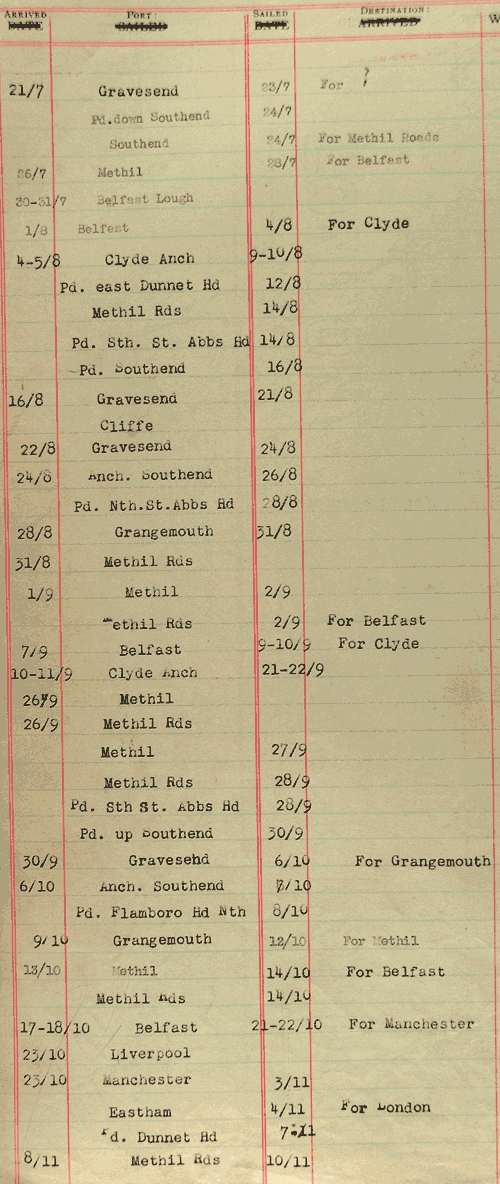 ARRIVED PORT: SAILED DESTINATION: W
DATE SAILED DATE ARRIVED
21/7 Gravesend 23/7 For ?
Pd.down Southend 24/7
Southend 24/7 For Methil Roads
26/7 Methil 28/7 For Belfast
30-31/7 Belfast Lough
1/8 Belfast 4/8 For Clyde
4-5/8 Clyde Anch 9-10/8
Pd. east Dunnet Hd 12/8
Methil Rds 14/8
Pd. Sth. St. Abbs Hd 14/8
Pd. Southend 16/8
16/8 Gravesend 21/8
Cliffe
22/8 Gravesend 24/8
24/8 Anch. Southend 26/8
Pd. Nth.St.Abbs Hd 28/8
28/8 Grangemouth 31/8
31/8 Methil Rds
1/9 Methil 2/9
Methil Rds 2/9 For Belfast
7/9 Belfast 9-10/9 For Clyde
10-11/9 Clyde Anch 21-22/9
26/9 Methil
26/9 Methil Rds
Methil 27/9
Methil Rds 28/9
Pd. Sth St. Abbs Hd 28/9
Pd. up Southend 30/9
30/9 Gravesehd 6/10 For Grangemouth
6/10 Anch. Southend 7/10
Pd. Flamboro Hd Nth 8/10
9/10 Grangemouth 12/10 For Methil
13/10 Methil 14/10 For Belfast
Methil Rds 14/10
17-18/10 Belfast 21-22/10 For Manchester
23/10 Liverpool
23/10 Manchester 3/11
Eastham 4/11 For London
Pd. Dunnet Hd 7/11
8/11 Methil Rds 10/11